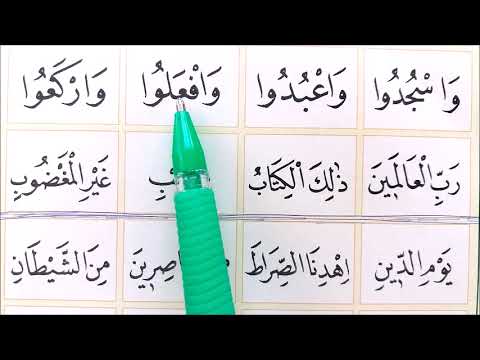 وَاسْجُدُوا وَاعْبُدُوا وَافْعَلُوا وَارْكَعُوا
رَبِّ الْعَالَمِينَ ذٰلِكَ الْكِتَابُ غَيْرِ الْمَغْضُوبِ
يَوْمِ الدِّينِ اِهْدِنَا الصِّرَاطَ مِنَ الشَّيْطَانِ